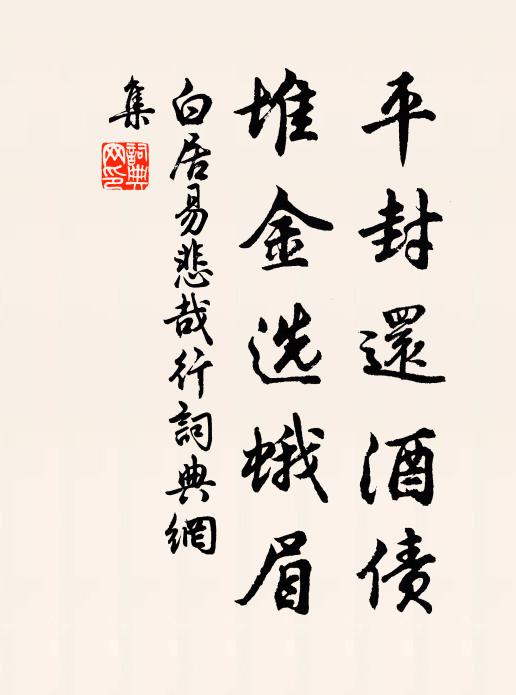 平封還酒债
堆金选蛾眉
白居易悲哉行詞典網
集
詞典網印